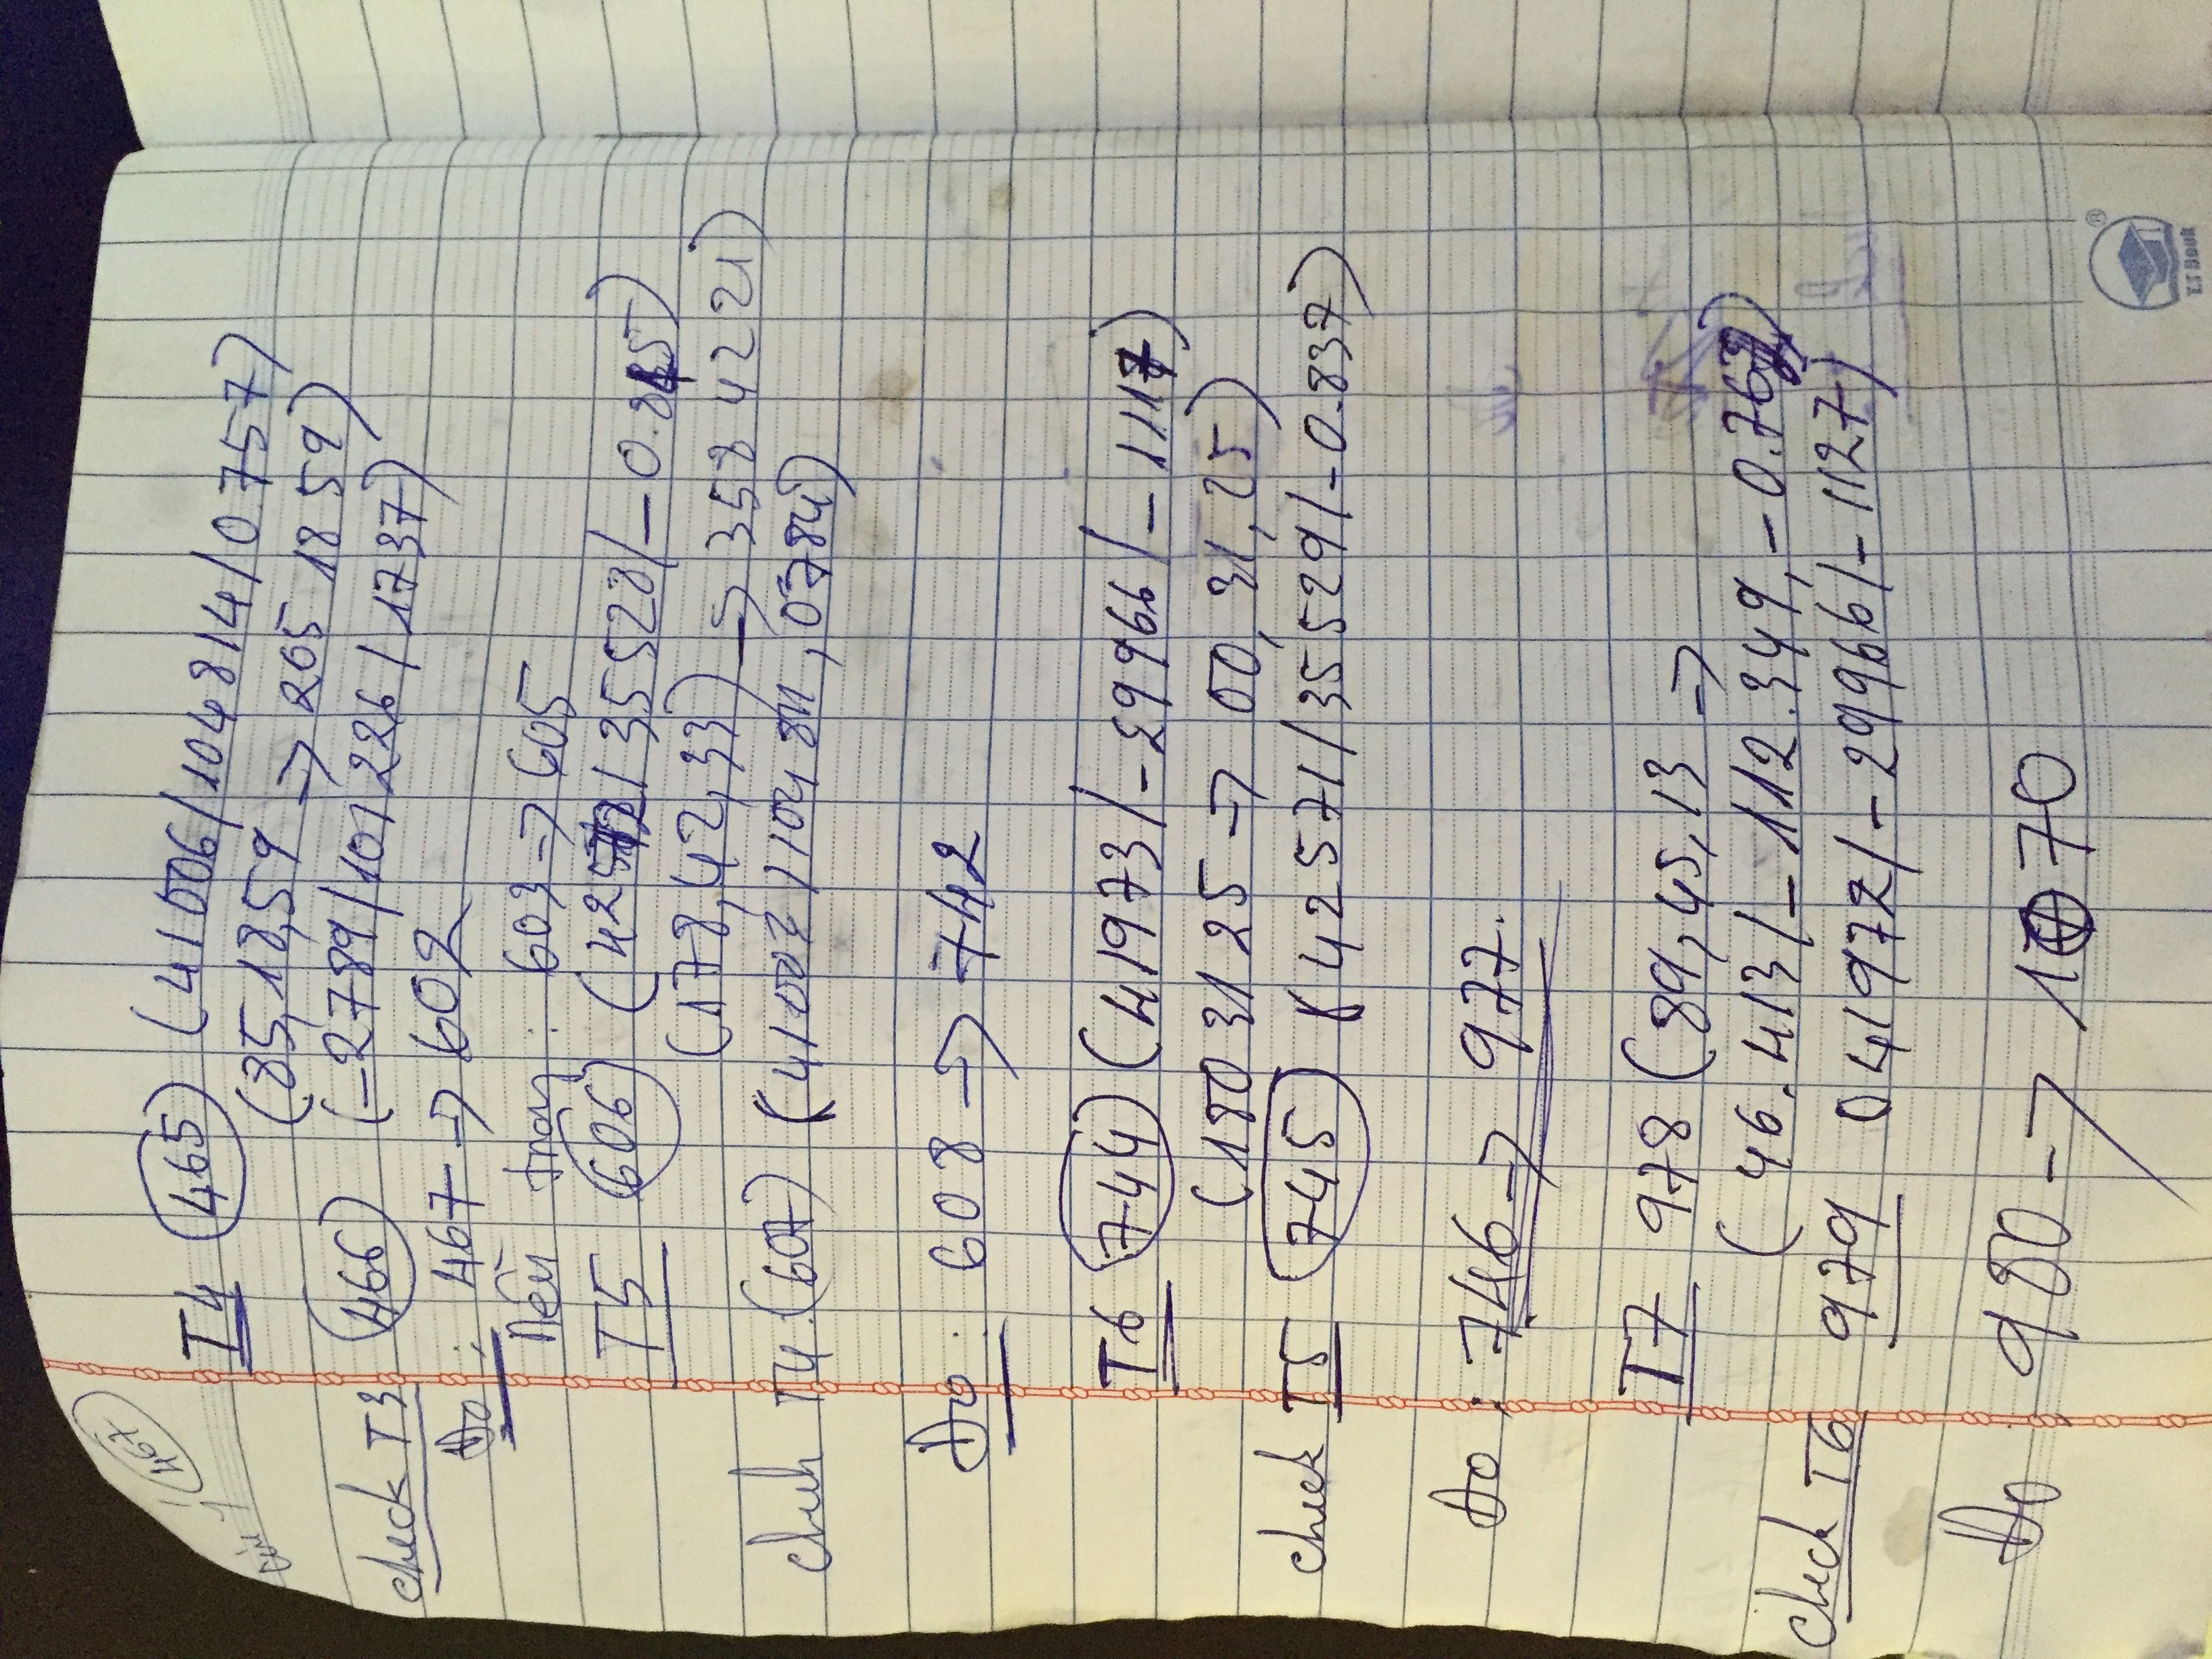 467
T4 465 (41006/104814/0.757)
(85,18,59 -> 205 18 59)
check T3 466 (-2789/101 226/1737)
Đo : 467 -> 602
Nền trạm : 603 -> 605
T5 606 (42572/35528/-0.815)
(178,42,33) -> 358 42 21)
Check T4 (607) (41007/104811,0784)
Đo : 608 -> 742
T6 744 (41973/-29966/-1117)
(180 31 25 -> 00,31,25)
check T5 745 (42571/35529/-0.837)
Đo : 746 -> 977.
T7 978 (89,45,13 ->
(46.413/-112.349,-0.762)
Check T6 979 041972/-29966/-1127)
Đo 980 -> 1070
T.T Book